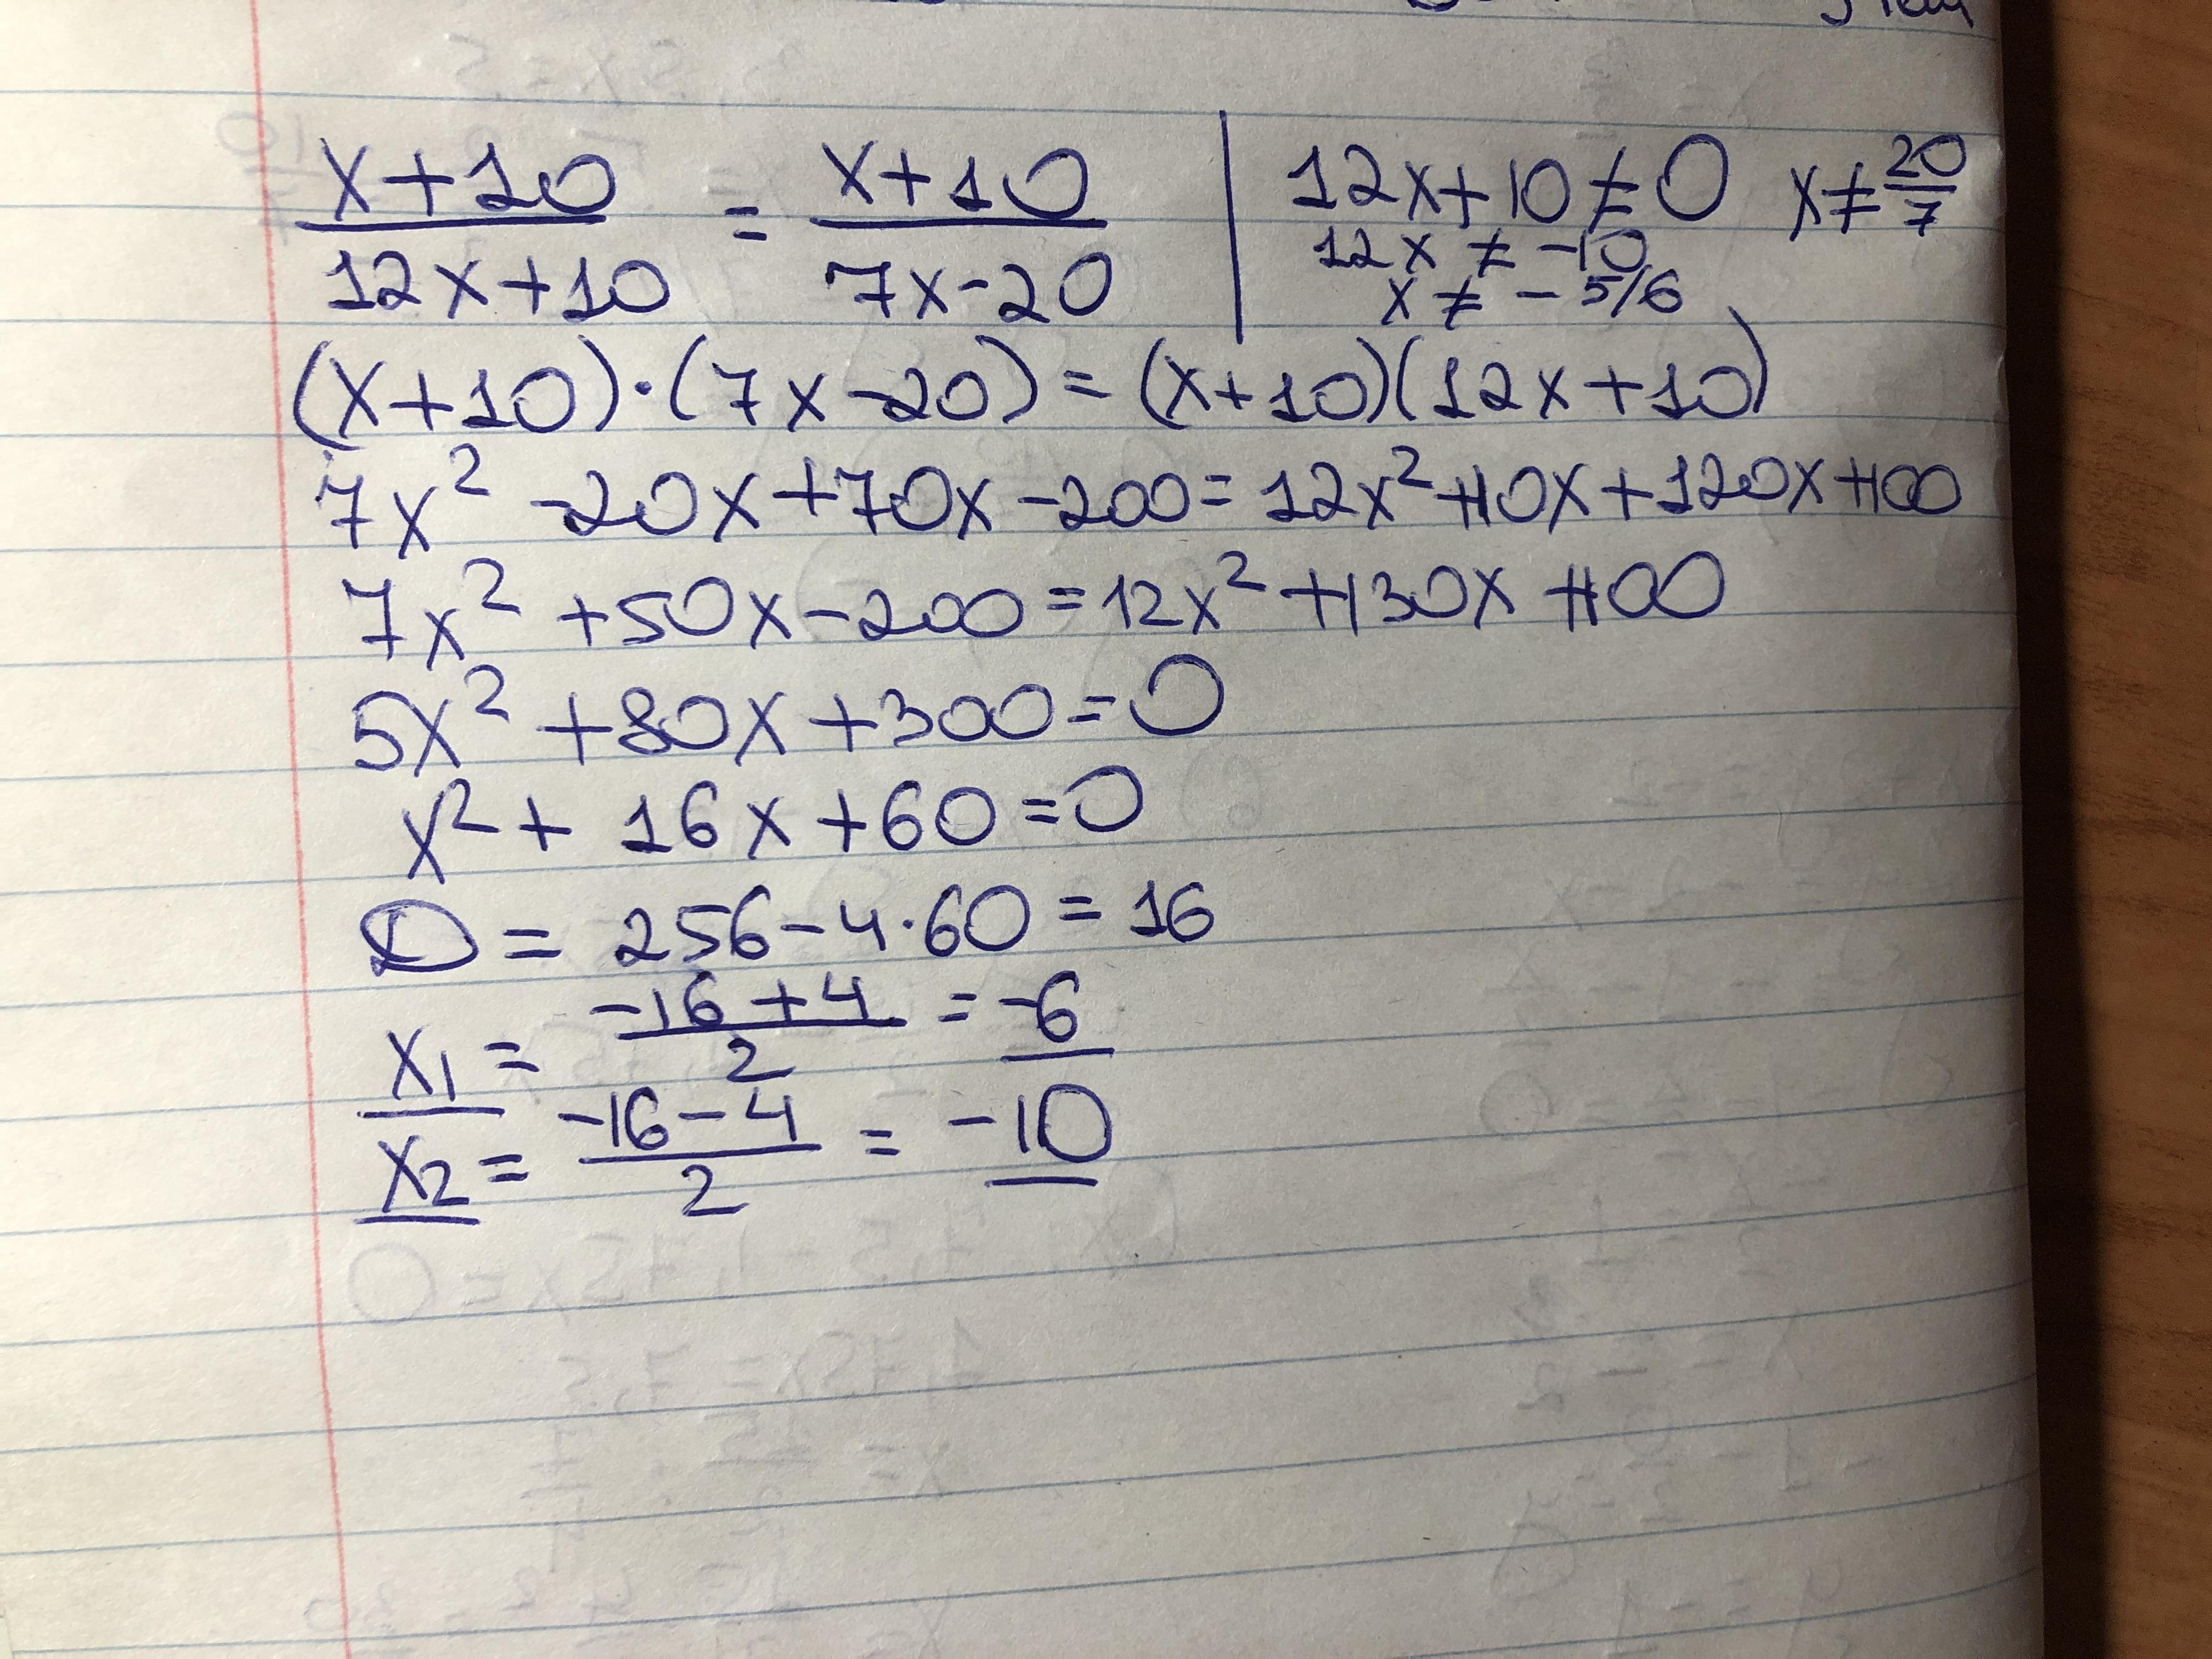 x+10 / 12x+10 = x+10 / 7x-20 | 12x+10≠0 x≠20/7
12x ≠ -10
x ≠ -5/6
(x+10)·(7x-20)=(x+10)(12x+10)
7x² -20x+70x-200=12x²+10x+120x+100
7x² +50x-200=12x²+130x+100
5x²+80x+300=0
x²+16x+60=0
D=256-4·60=16
x1=-16+4/2=-6
x2=-16-4/2=-10